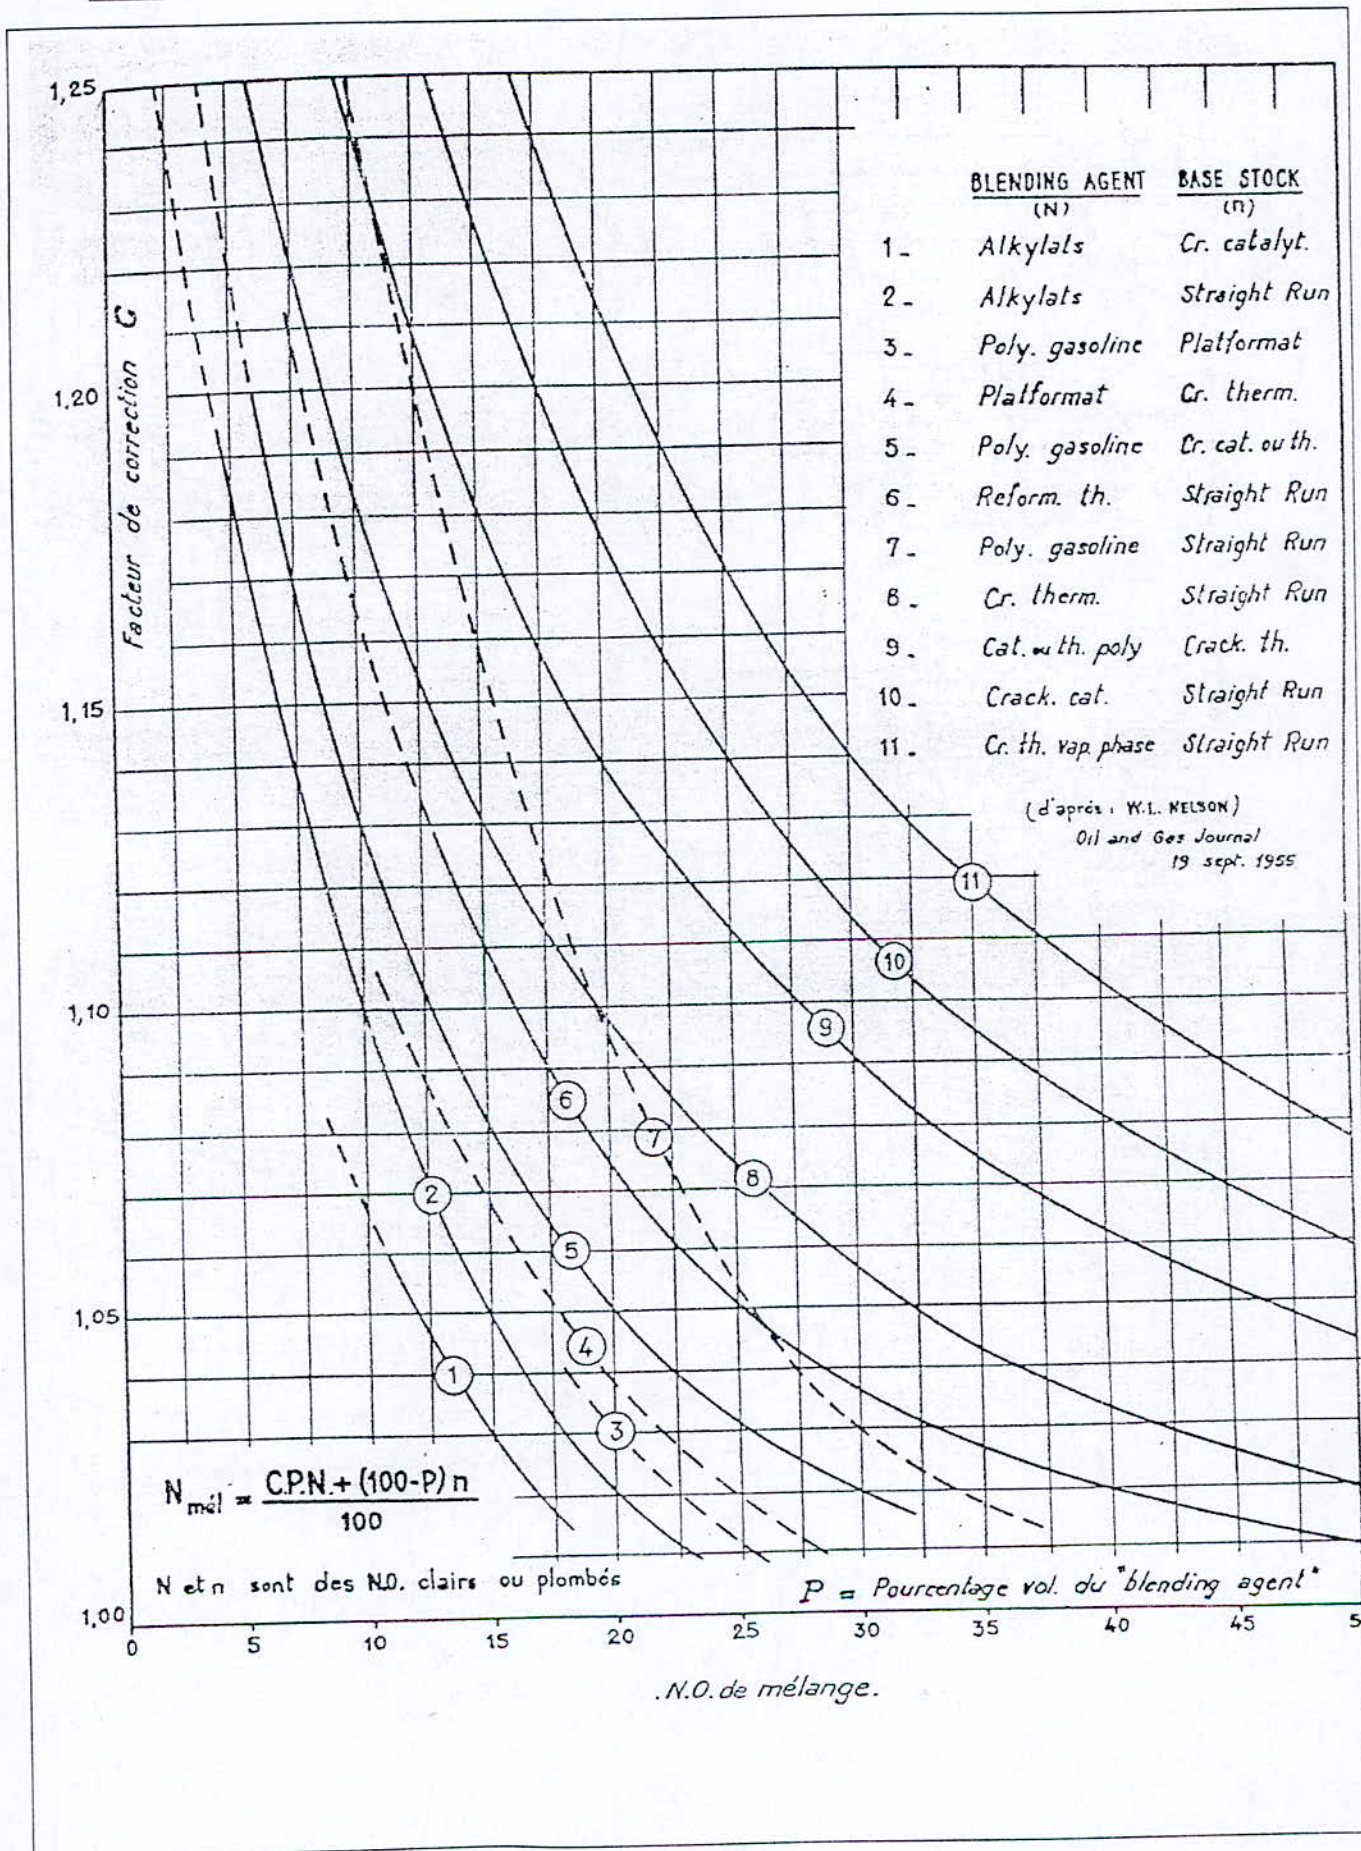 1,25
1,20
1,15
1,10
1,05
1,00
Facteur de correction C
BLENDING AGENT BASE STOCK
(N) (n)
1_ Alkylats Cr. catalyt.
2_ Alkylats Straight Run
3_ Poly. gasoline Platformat
4_ Platformat Cr. therm.
5_ Poly. gasoline Cr. cat. ou th.
6_ Reform. th. Straight Run
7_ Poly. gasoline Straight Run
8_ Cr. therm. Straight Run
9_ Cat. ou th. poly Crack. th.
10_ Crack. cat. Straight Run
11_ Cr. th. vap. phase Straight Run
(d'après: W.L. NELSON)
Oil and Gas Journal
19 sept. 1955
11
10
9
6
7
8
2
5
4
1
3
N mél = C.P.N. + (100-P) n
100
N et n sont des N.O. clairs ou plombés
P = Pourcentage vol. du "blending agent"
0 5 10 15 20 25 30 35 40 45 5
.N.O. de mélange.